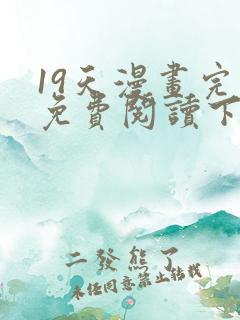 19天漫畫完
免費閱讀下
二發熊了
未經同意禁止轉載